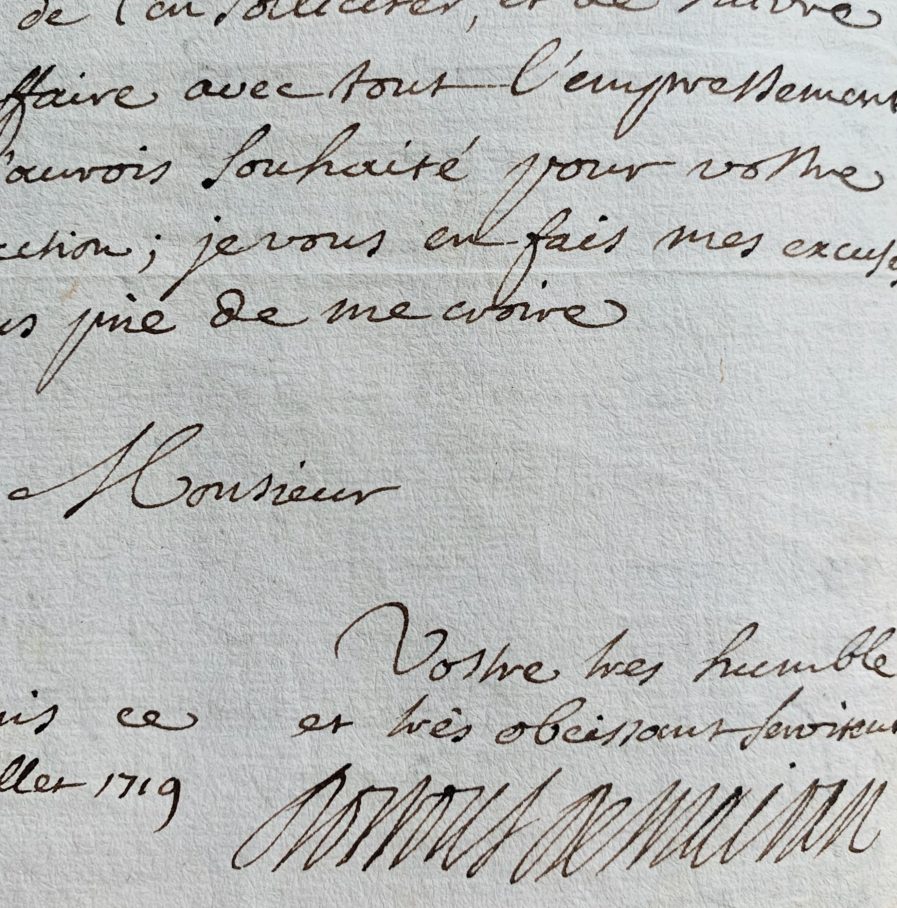 de l'en solliciter, et de suivre
ffaire avec tout l'empressement
j'aurois souhaité pour vostre
ction; je vous en fais mes excuses
us prie de me croire
Monsieur
Vostre tres humble
is ce et très obeissant serviteur
llet 1719